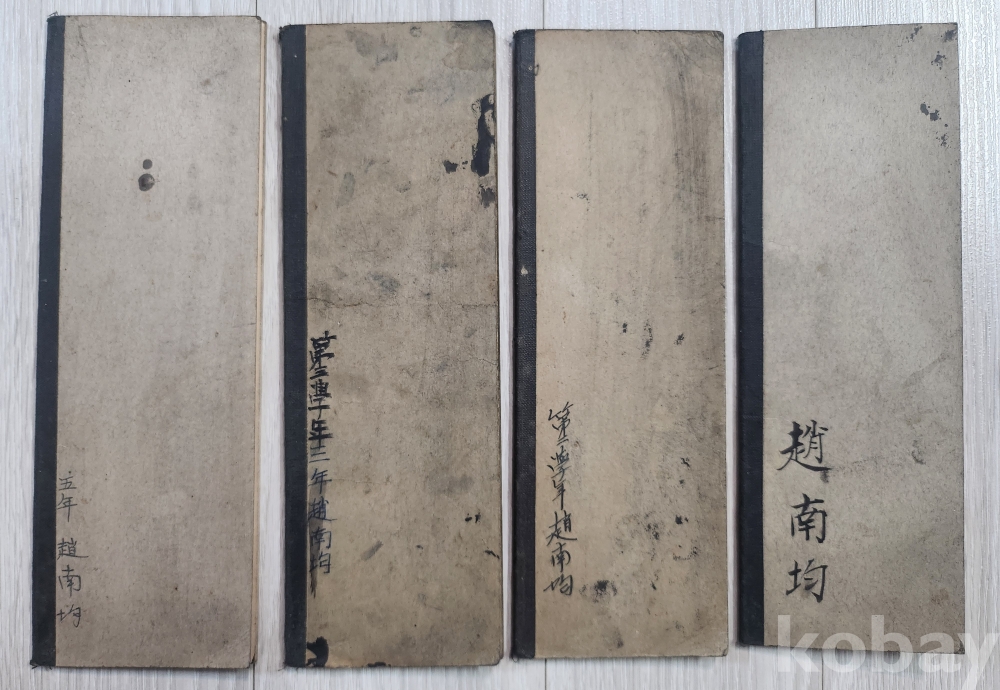 五年 趙南均
第三學年三年趙南均
第二學年 趙南均
趙南均
kobay